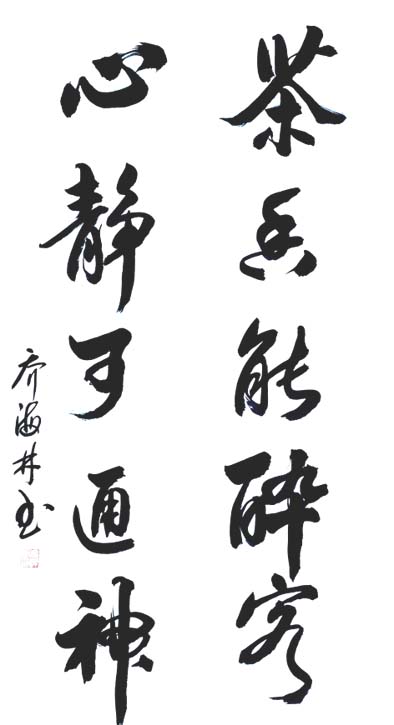 茶香能醉客
心静可通神
齐海林书